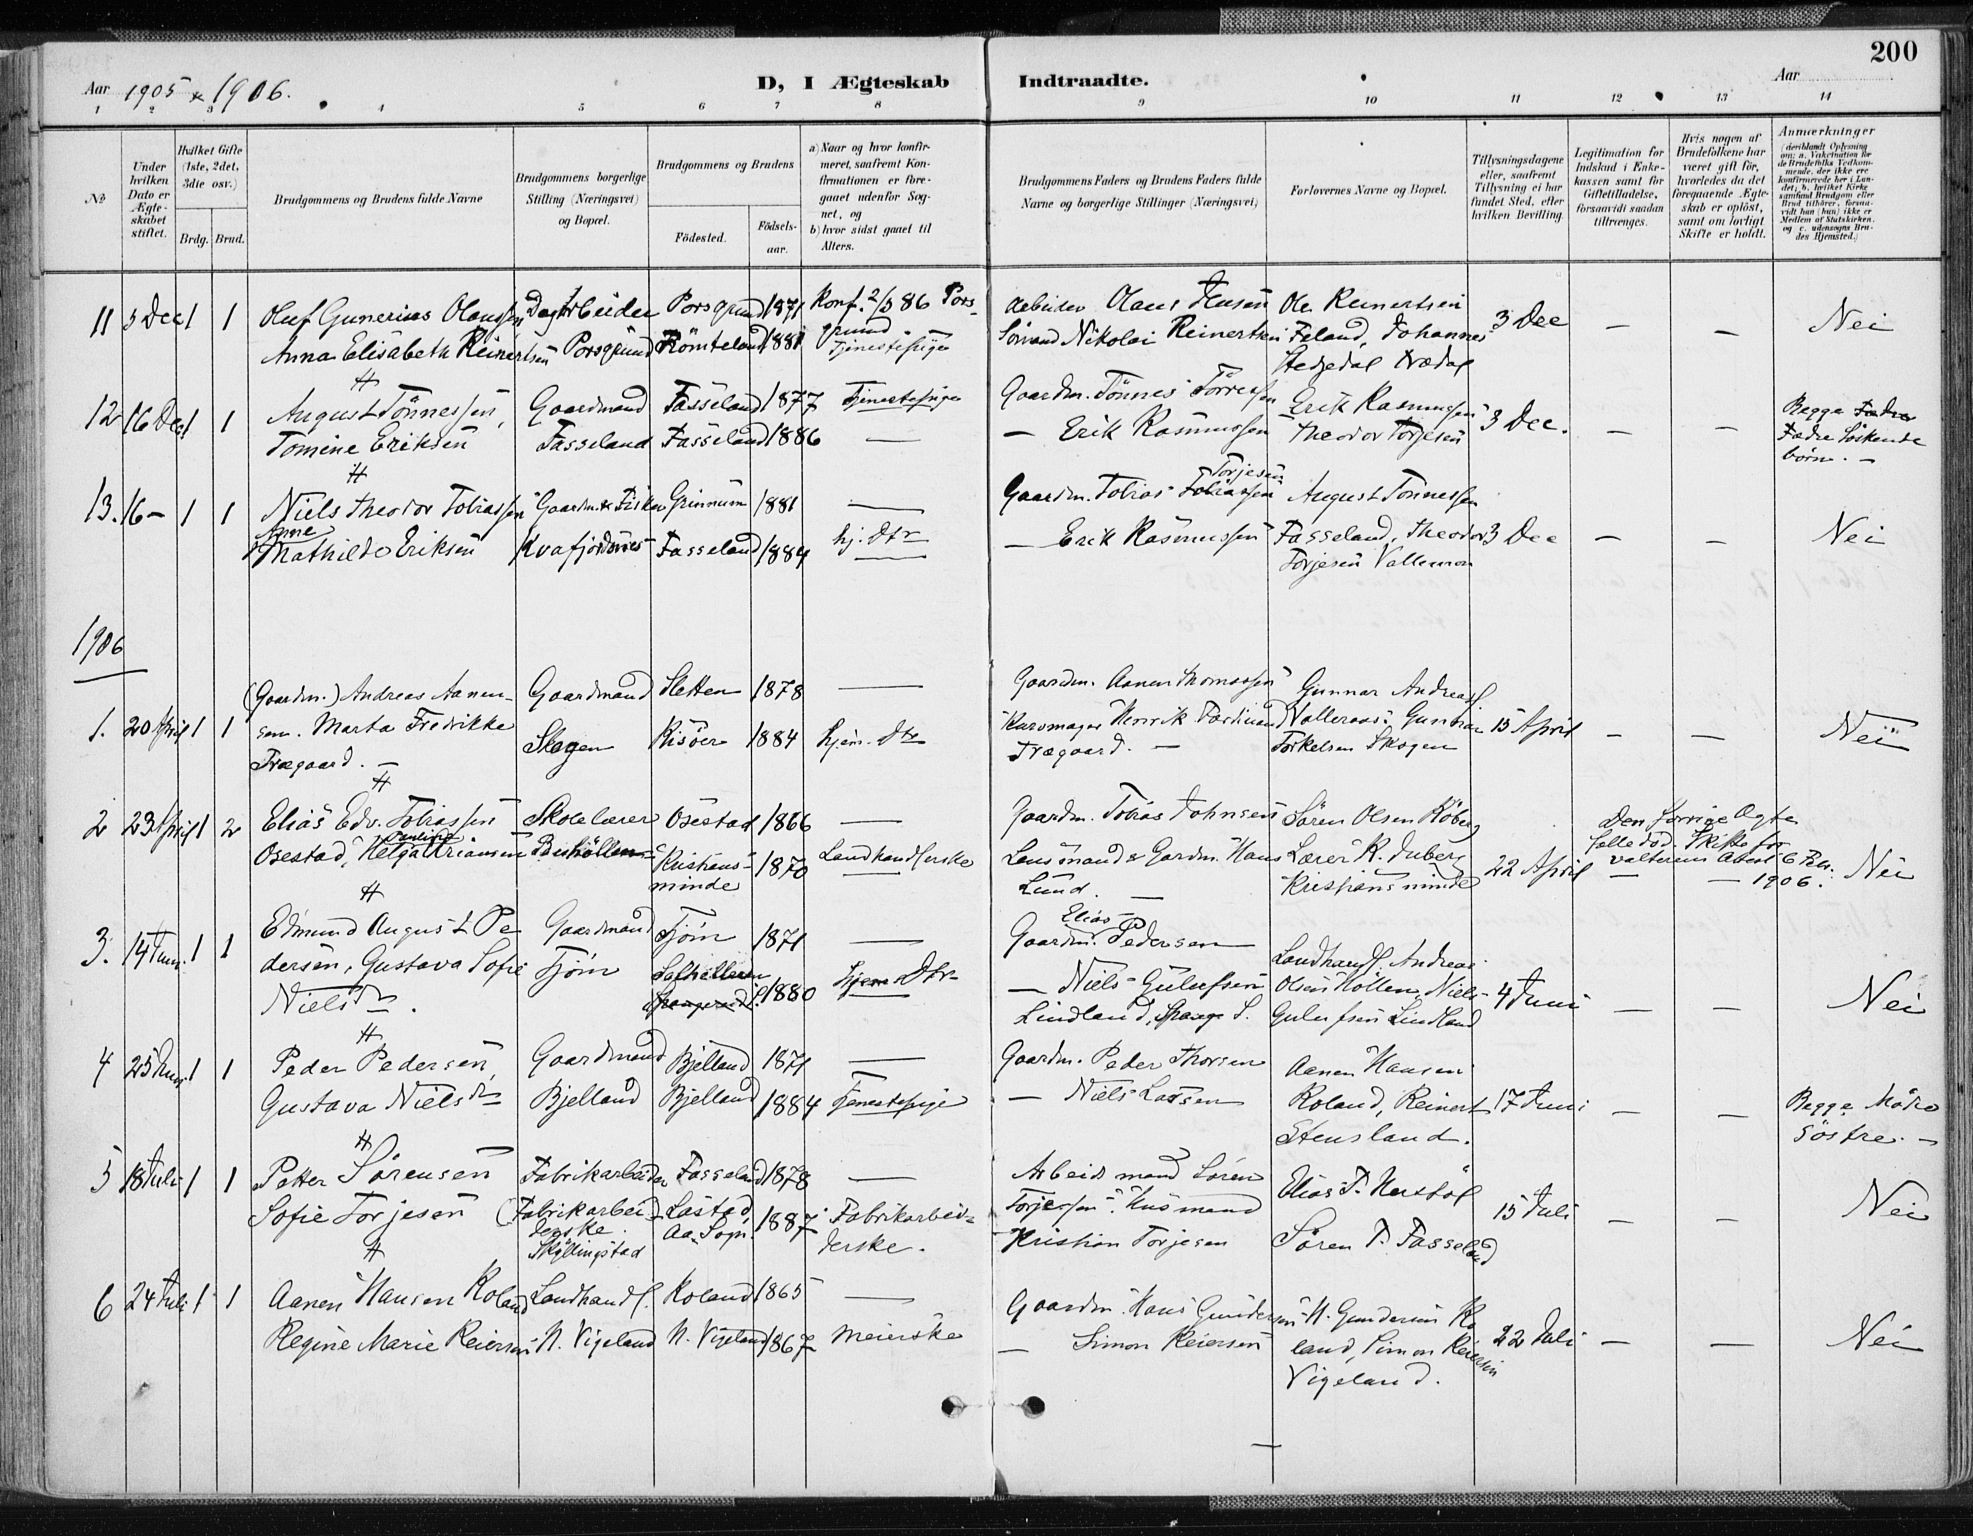 200
Aar 1905 & 1906.
D, I Ægteskab Indtraadte.
Aar
1 2 3 4 5 6 7 8 9 10 11 12 13 14
№
Under hvilken Dato er Ægteskabet stiftet.
Hvilket Gifte (1ste, 2det, 3die osv.)
Brdg. Brud.
Brudgommens og Brudens fulde Navne
Brudgommens borgerlige Stilling (Næringsvei) og Bopæl.
Brudgommens og Brudens
Fødested.
Fødselsaar.
a) Naar og hvor konfirmeret, saafremt Konfirmationen er foregaaet udenfor Sognet, og
b) hvor sidst gaaet til Alters.
Brudgommens Faders og Brudens Faders fulde Navne og borgerlige Stillinger (Næringsvei)
Forlovernes Navne og Bopæl.
Tillysningsdagene eller, saafremt Tillysning ei har fundet Sted, efter hvilken Bevilling.
Legitimation for Indskud i Enkekassen samt for Giftetilladelse, forsaavidt saadan tiltrænges.
Hvis nogen af Brudefolkene har været gift før, hvorledes da det foregaaende Ægteskab er opløst, samt om lovligt Skifte er holdt.
Anmærkninger
11 3 Dec 1 1 Oluf Gunerius Olaussen Dagarbeider Porsgrund 1871 Konf. 2/5 86 Pors- Arbeider Olaus Hansen Ole Reinertsen 3 Dec — — Nei
Anna Elisabeth Reinertsen Porsgrund Römteland 1881 grund Tjenestepige Sörmand Nikolai Reinertsen Feland, Johannes
Stedjedal Trædal
12 16 Dec 1 1 August Tönnessen, Gaardmand Fasseland 1877 Tjenestepige Gaardm. Tönnes Törressen Erik Rasmussen 3 Dec. — — Begge
Tomine Eriksen Fasseland Fasseland 1886 — — Erik Rasmussen Theodor Torjesen Fædre Söskende
börn. —
13. 16 — 1 1 Niels Theodor Tobiassen Gaardm. & Fisker Grinnum 1881 — Gaardm. Tobias Torjesen August Tönnessen
Anne Mathilde Eriksen Kvafjordnes Fasseland 1884 hj. Dtr — Erik Rasmussen Fasseland, Theodor 3 Dec — — Nei
Torjesen Vallemon
1906
1. 20 April 1 1 (Gaardm.) Andreas Aanen- Gaardmand Sletten 1878 — Gaardm. Aanen Thomassen Gunnar Andreas
sen. Marta Fredrikke Skogen Risöer 1884 hjem. Dtr Kurvmager Henrik Ferdinand Valleraas. Gunnar 15 April — — Nei
Trægaard. — Trægaard. — Torkelsen Skogen
2 23 April 1 2 Elias Edv. Tobiassen Skolelærer Osestad 1866 — Gaardm. Tobias Johnsen Sören Olsen Höberg Den forrige Ægte
Osestad, Helga Pauline Adriansen Kristians- 1870 Landhandlerske Lensmand & Gardm. Hans Lærer K. Duberg 22 April fælle död. Skifte for
minde Lund. — Kristiansminde 1906. Nei
3. 14 Juni 1 1 Edmund August Pe Gaardmand Tjöm 1871 — Gaardm. Elias Pedersen
dersen, Gustava Sofie Tjöm Hjem Dtr Landhandl. Andreas
Niels Dtr. 1880 — Niels Gulufsen Olsen Höllen, Niels 4 Juni — — Nei
Lindland, Spange S. Gulufsen Lindland
4 25 Juni 1 1 Peder Pedersen, Gaardmand Bjelland 1871 — Gaardm. Peder Thorsen Aanen Hansen
Gustava Niels Dtr Bjelland Bjelland 1884 Tjenestepige — Niels Larsen Roland, Reinert 17 Juni — — Begge Mödre
Stensland. Söstre. —
5 18 Juli 1 1 Petter Sörensen Fabrikarbeider Fasseland 1878 — Arbeidsmand Sören Elias T. Herstöl
Sofie Torjesen (Fabrikarbei- Lastad 1887 Fabrikarbei- Torjessen. Husmand 15 Juli — — Nei
derske. Aa. Sogn. derske. Kristian Torjesen Sören T. Fasseland
Skjöllingstad
6 24 Juli 1 1 Aanen Hansen Roland Landhandl. Roland 1865 — Gaardm. Hans Gundersen H. Gundersen Ro
Regine Marie Reiersen N. Vigeland N. Vigeland 1867 Meierske — Simon Reiersen land, Simon Reiersen 22 Juli — — Nei
Vigeland.